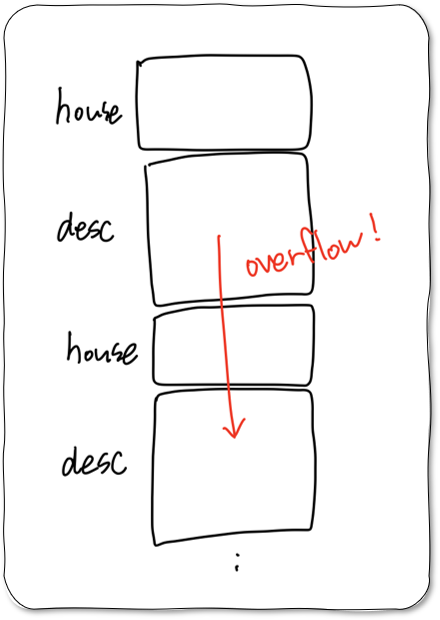 house
desc
overflow!
house
desc
: